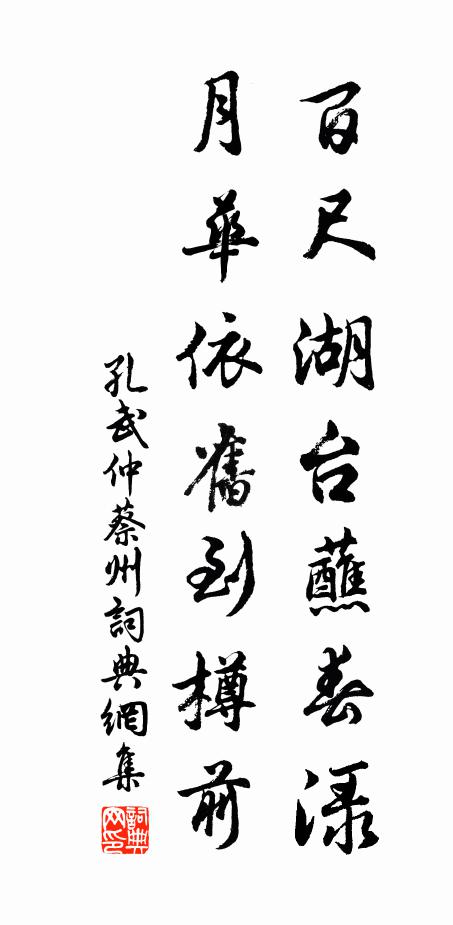 百尺湖台蘸春渌
月華依舊到樽前
孔武仲蔡州詞典網集
詞典网印